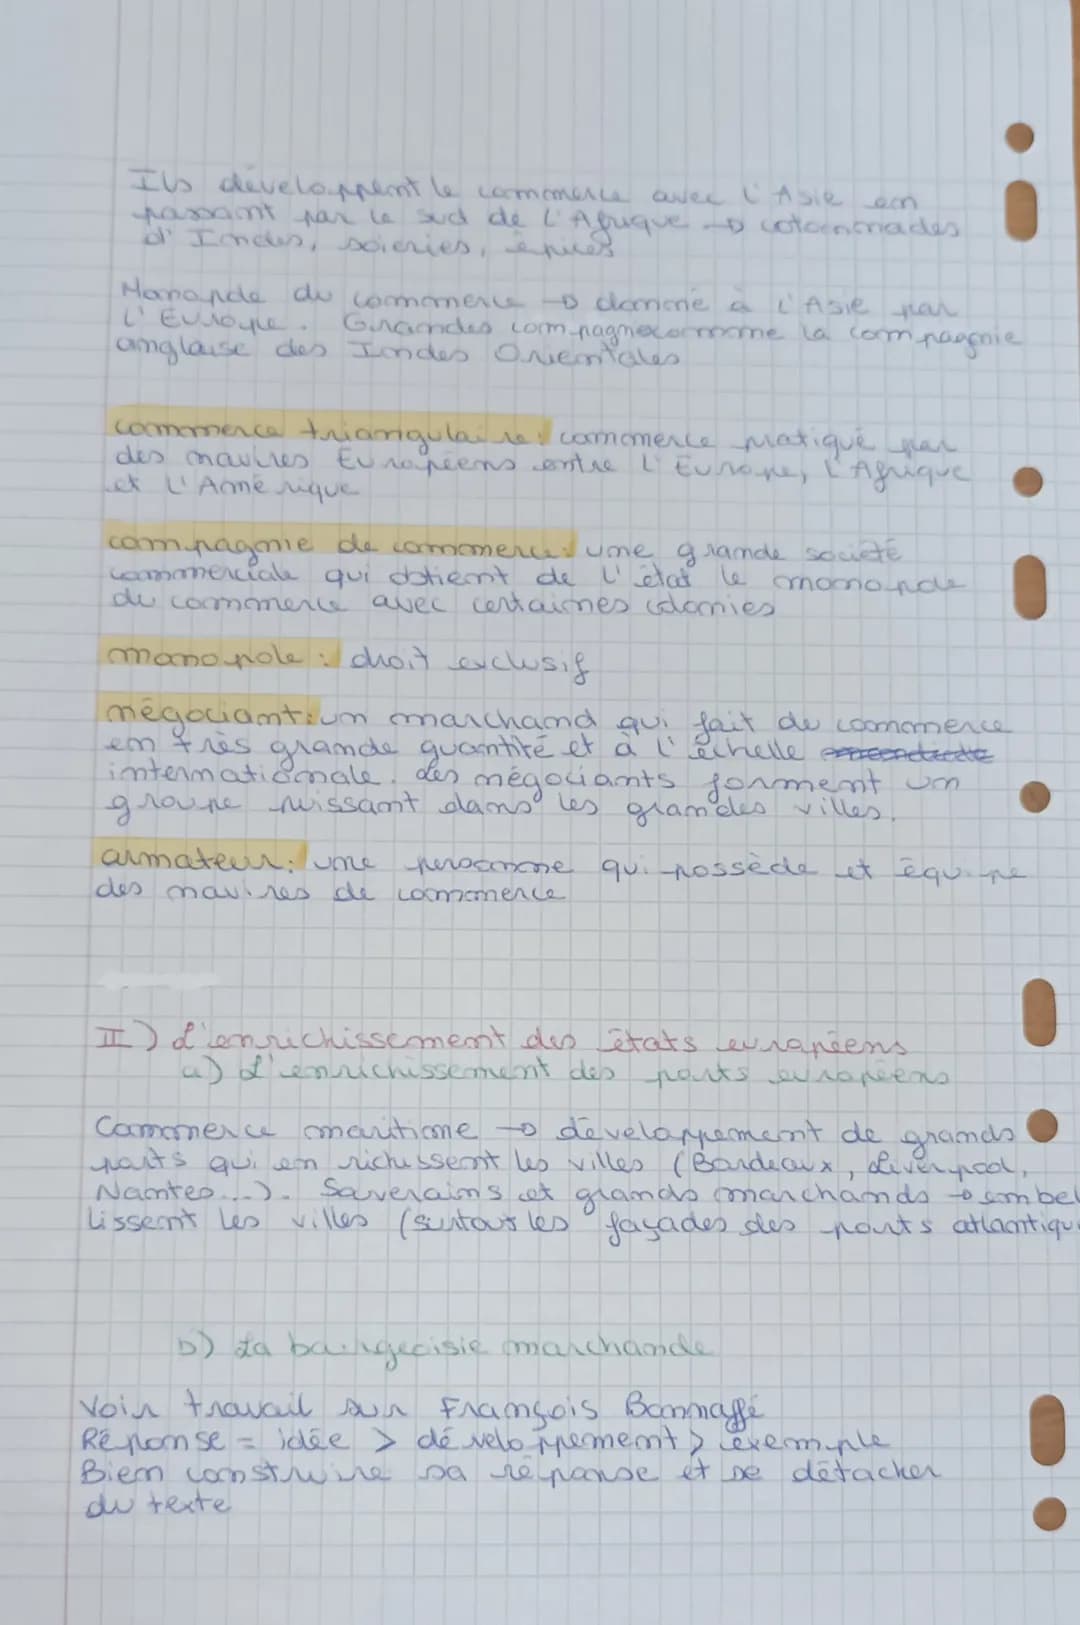 Ils développent le commerce avec l'Asie en
passant par le sud de l'Afrique → cotonnades
d'Indes, soieries, épices
Monopole du commerce → donné à l'Asie par
l'Europe. Grandes compagnes comme la compagnie
anglaise des Indes Orientales
commerce triangulaire : commerce pratiqué par
des navires Européens entre l'Europe, l'Afrique
et l'Amérique
compagnie de commerce : une grande société
commerciale qui obtient de l'état le monopole
du commerce avec certaines colonies
monopole : droit exclusif
négociant : un marchand qui fait du commerce
en très grande quantité et à l'échelle
internationale. Les négociants forment un
groupe puissant dans les grandes villes.
armateur : une personne qui possède et équipe
des navires de commerce
II) L'enrichissement des états européens
a) L'enrichissement des ports européens
Commerce maritime → développement de grands
ports qui enrichissent les villes (Bordeaux, Liverpool,
Nantes...). Souverains et grands marchands → embel
lissent les villes (surtout les façades des ports atlantiqu
b) La bourgeoisie marchande
Voir travail sur François Bonnaffé
Réponse = idée > développement > exemple
Bien construire sa réponse et se détacher
du texte